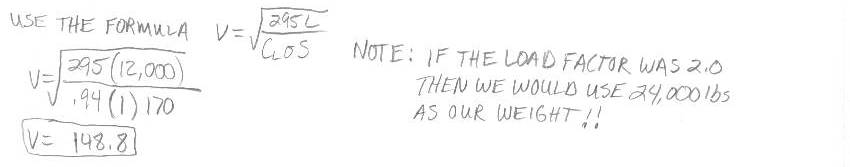 USE THE FORMULA V=√295L/CLσS
V=√295(12,000)/.94(1)170
V= 148.8
NOTE: IF THE LOAD FACTOR WAS 2.0
THEN WE WOULD USE 24,000 lbs
AS OUR WEIGHT!!